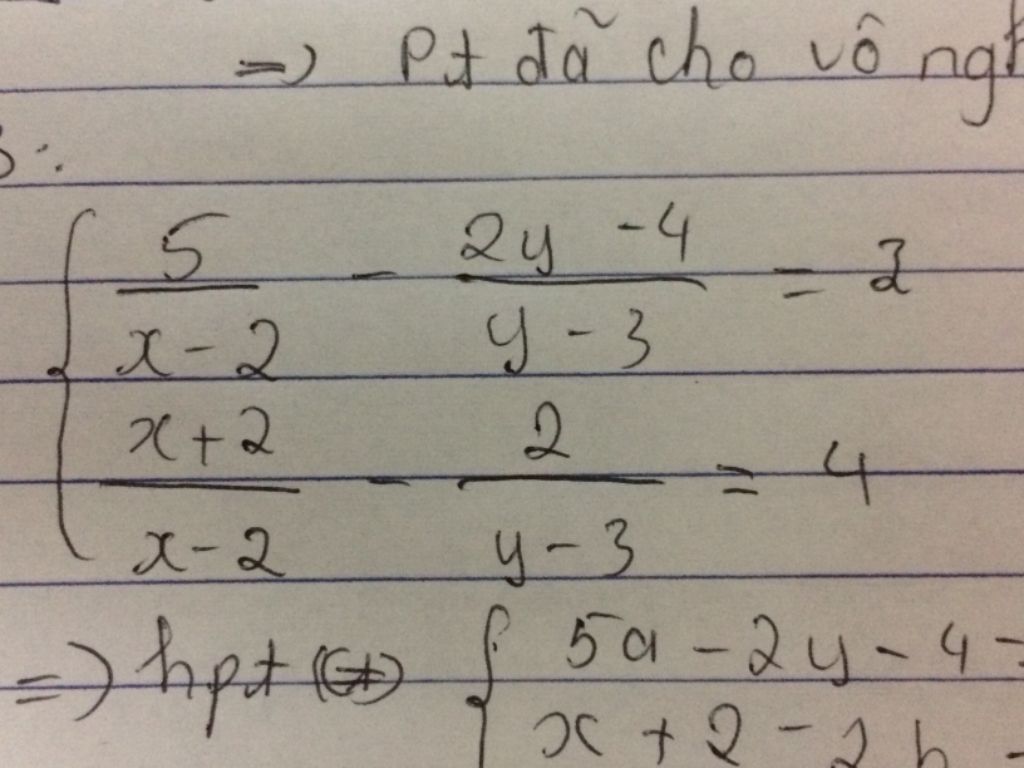 => Pt đã cho vô
3:
{ 5/(x-2) - (2y-4)/(y-3) = 2
(x+2)/(x-2) - 2/(y-3) = 4
=> hpt { 5a - 2y - 4 =
x + 2 - 2b